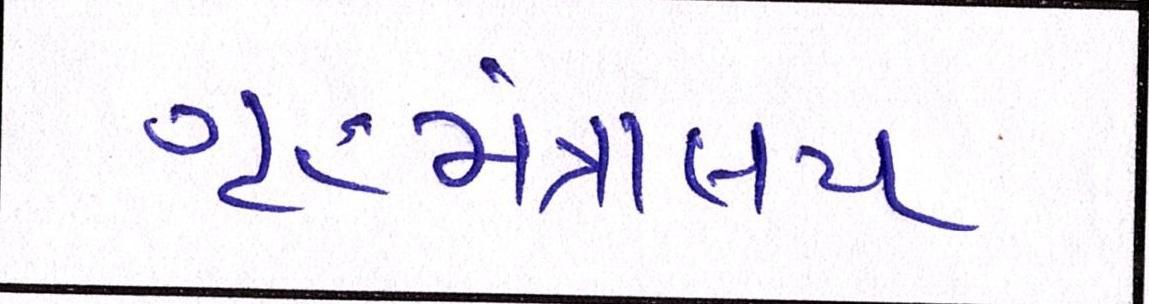 ગૃહમંત્રાલય